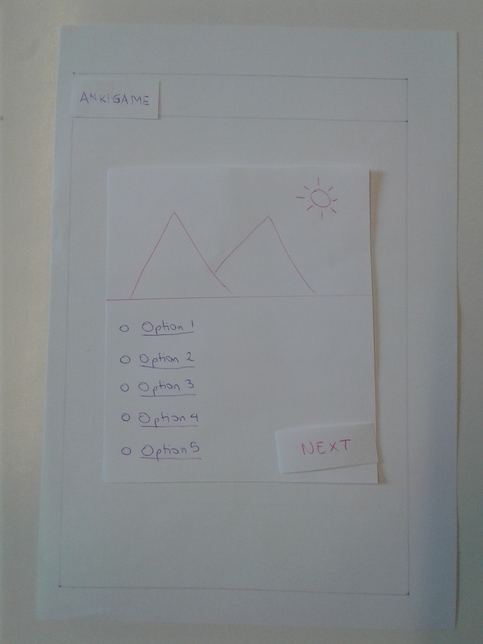 ANKIGAME
O Option 1
O Option 2
O Option 3
O Option 4
O Option 5
NEXT